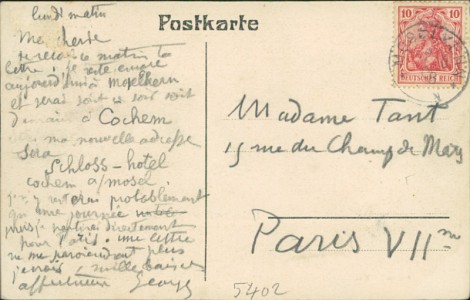 lundi matin
Postkarte
10 10
DEUTSCHES REICH
Ma
je reçois ce matin ta
lettre je reste encore
aujourd'hui à Moselkern
et serai soit ce soir soit
demain à Cochem
ma nouvelle adresse
sera
Schloss-hotel
cochem a/mosel.
j'y resterai probablement
qu'une journée
puis je partirai directement
pour Paris. une lettre
ne me parviendrait plus
mille baisers
affectueux Georges
Madame Tant
15 rue du Champ de Mars
Paris VII me
5402